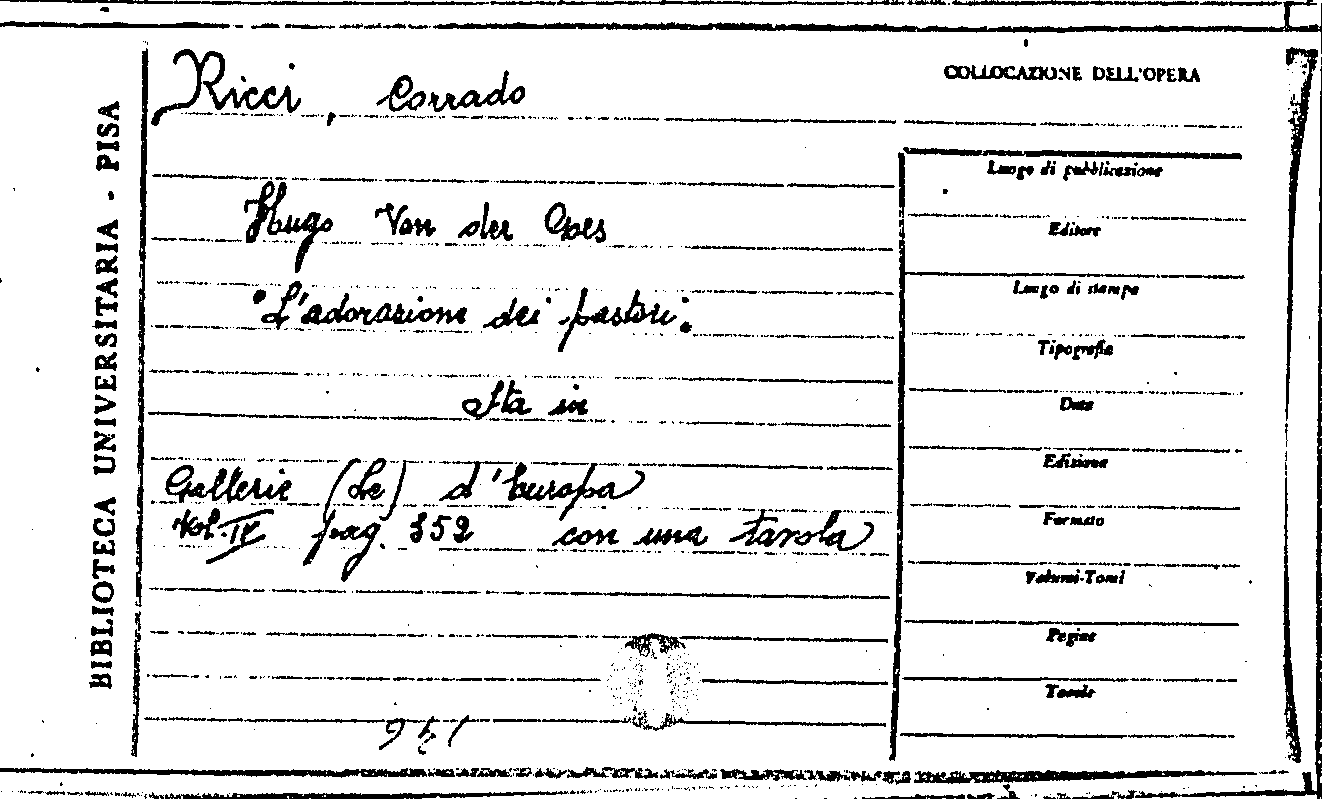 BIBLIOTECA UNIVERSITARIA - PISA
Ricci, Corrado
COLLOCAZIONE DELL'OPERA
Hugo Van der Goes
"L'adorazione dei pastori".
Sta in
Gallerie (Le) d'Europa
Vol. IV pag. 352 con una tavola
Luogo di pubblicazione
Editore
Luogo di stampa
Tipografia
Data
Edizione
Formato
Volumi-Tomi
Pagine
Tavole